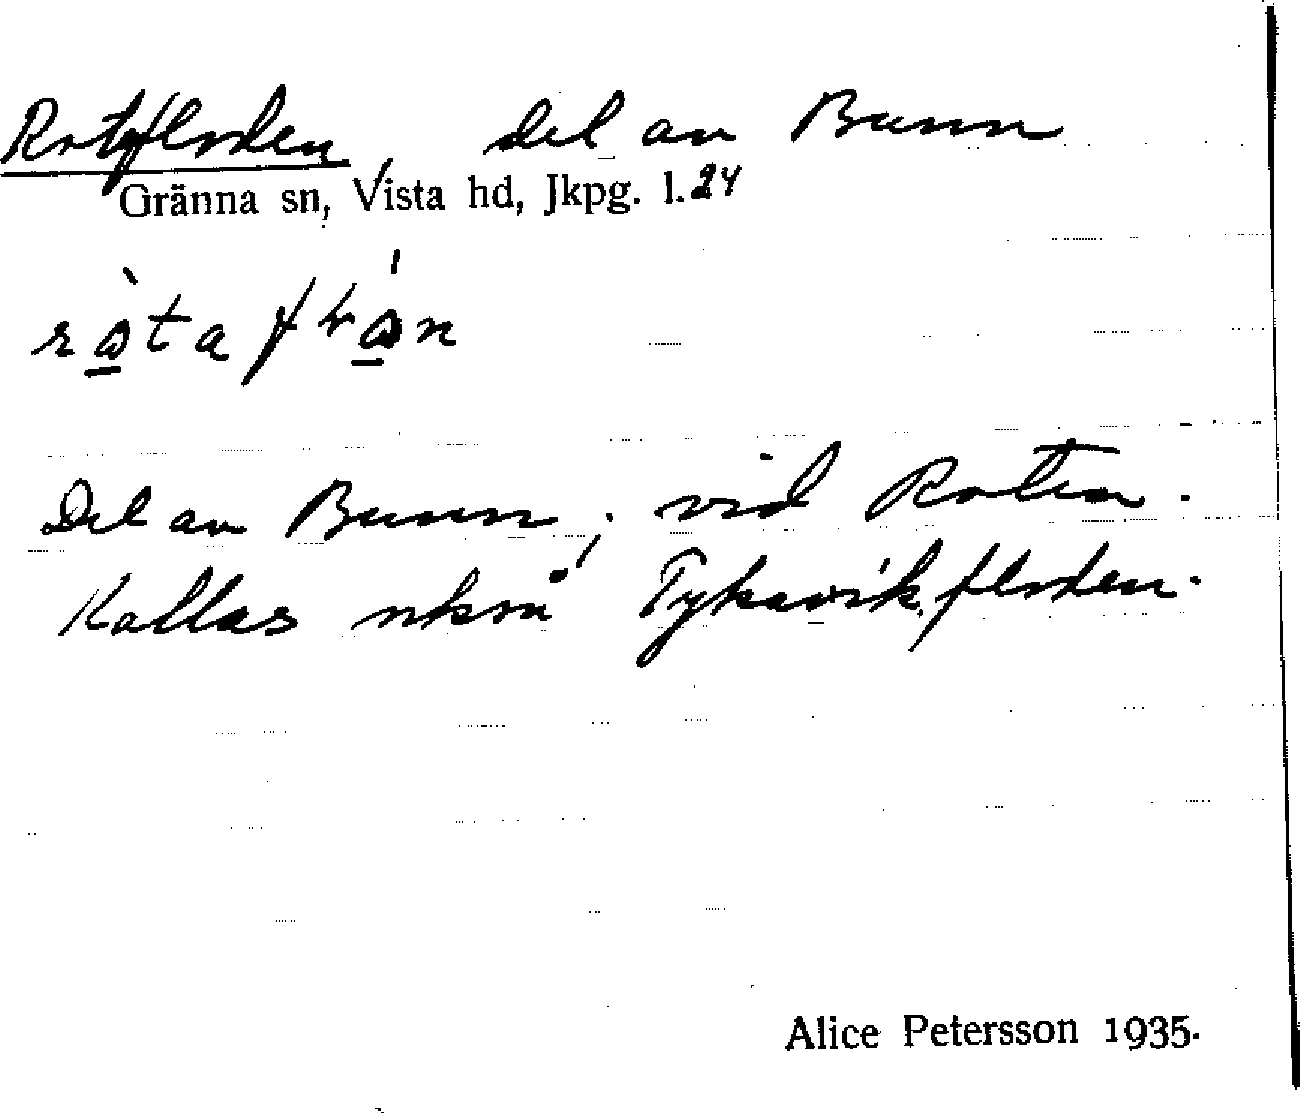 Rotafloden, del av Bunn
Gränna sn, Vista hd, Jkpg. l. 24
Del av Bunn, vid Roten.
Kallas också Tykavikfloden.
Alice Petersson 1935.